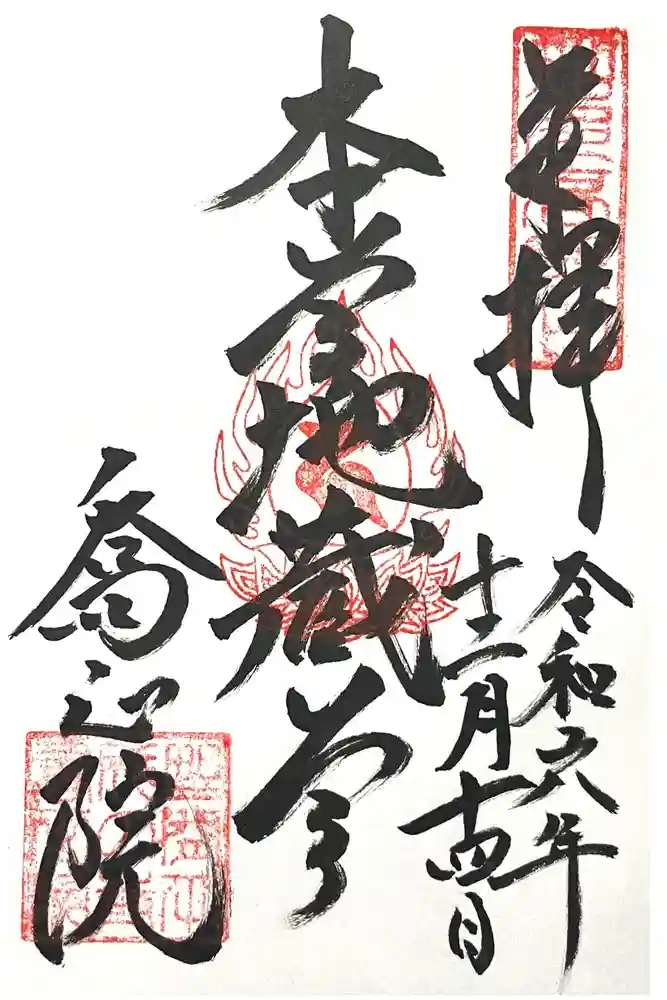 奉拝
令和六年
十二月十四日
本尊地蔵尊
喬迎院